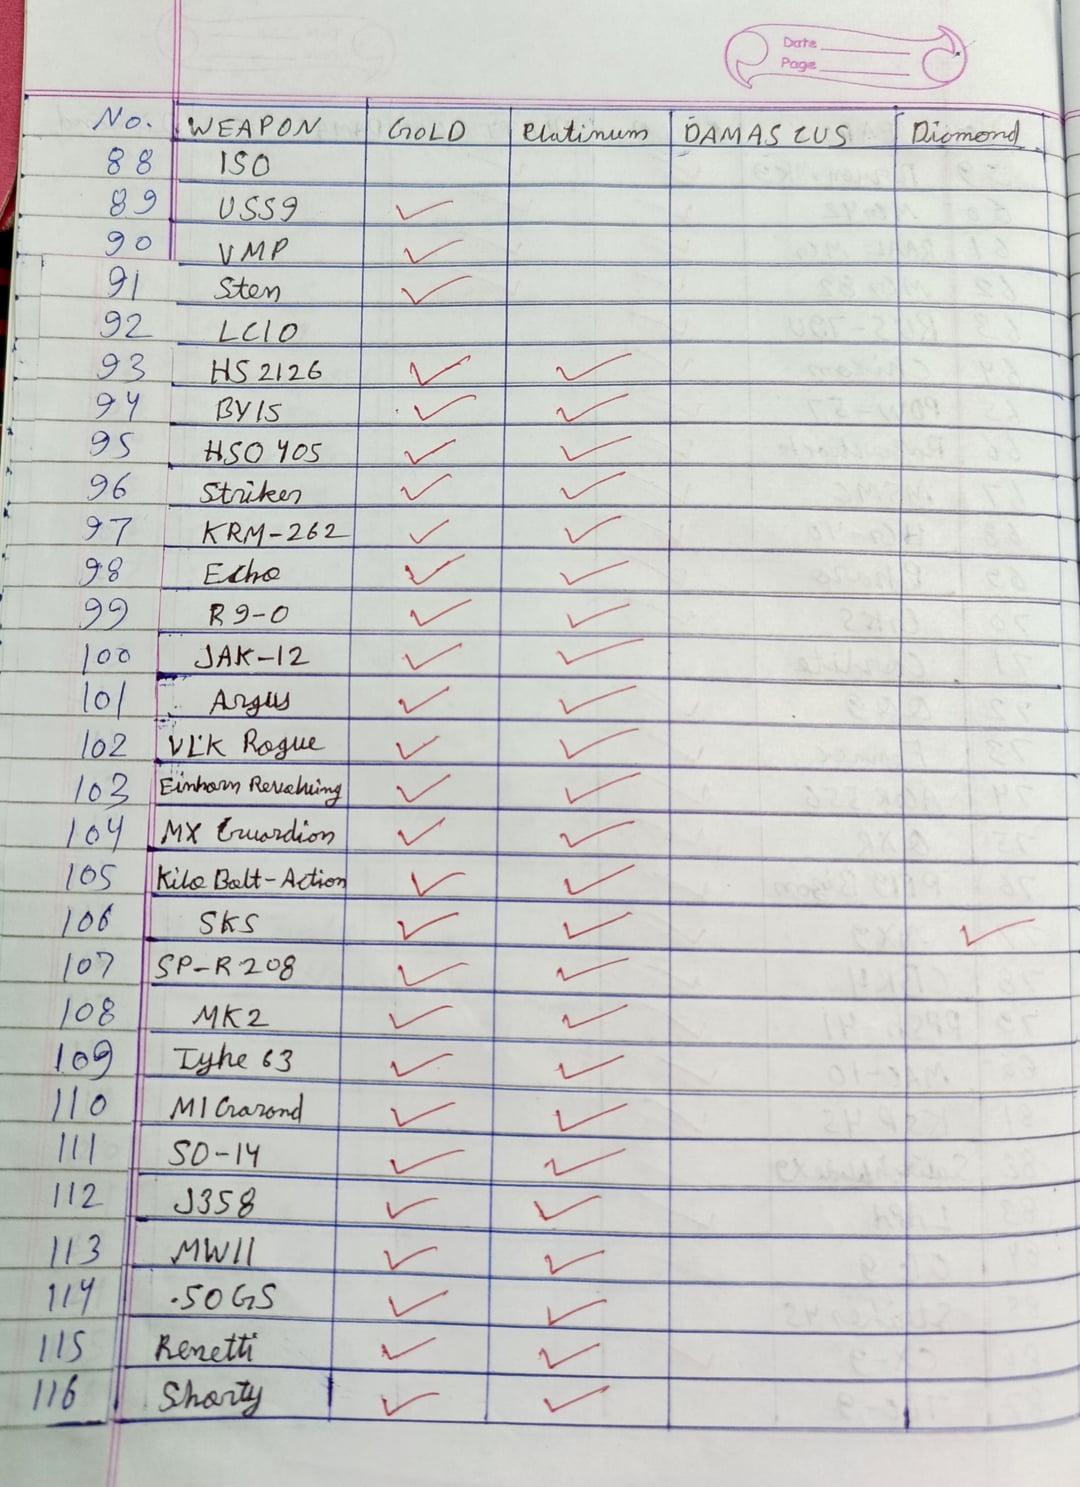 Date
Page
No. WEAPON GOLD Platinum DAMASCUS Diomond
88 ISO
89 USS9 ✓
90 VMP ✓
91 Sten ✓
92 LC10
93 HS2126 ✓ ✓
94 BY15 ✓ ✓
95 HSO405 ✓ ✓
96 Striker ✓ ✓
97 KRM-262 ✓ ✓
98 Echo ✓ ✓
99 R9-0 ✓ ✓
100 JAK-12 ✓ ✓
101 Argus ✓ ✓
102 VLK Rogue ✓ ✓
103 Einhorn Revolving ✓ ✓
104 MX Guardion ✓ ✓
105 Kilo Bolt-Action ✓ ✓
106 SKS ✓ ✓ ✓
107 SP-R 208 ✓ ✓
108 MK2 ✓ ✓
109 Tyhe 63 ✓ ✓
110 M1 Garand ✓ ✓
111 SO-14 ✓ ✓
112 J358 ✓ ✓
113 MW11 ✓ ✓
114 .50GS ✓ ✓
115 Renetti ✓ ✓
116 Shorty ✓ ✓